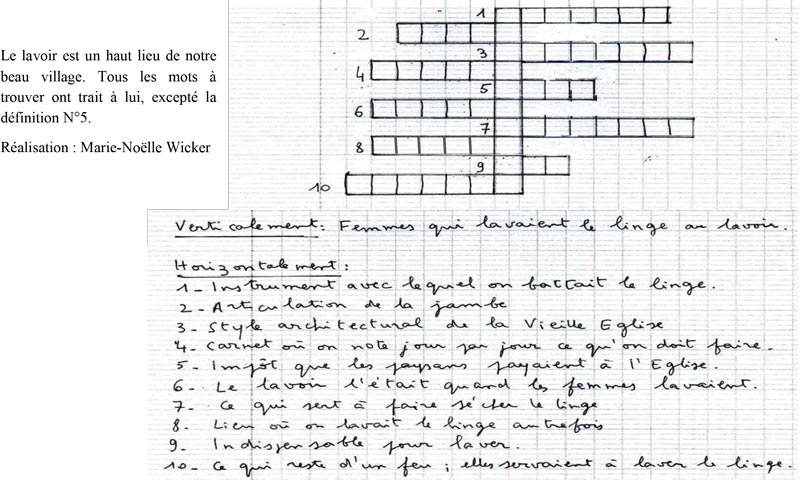 Le lavoir est un haut lieu de notre
beau village. Tous les mots à
trouver ont trait à lui, excepté la
définition N°5.
Réalisation : Marie-Noëlle Wicker
1
2
3
4
5
6
7
8
9
10
Verticalement: Femmes qui lavaient le linge au lavoir.
Horizontalement :
1 - Instrument avec lequel on battait le linge.
2 - Articulation de la jambe
3 - Style architectural de la Vieille Eglise
4 - Carnet où on note jour par jour ce qu'on doit faire.
5 - Impôt que les paysans payaient à l'Eglise.
6 - Le lavoir l'était quand les femmes lavaient.
7 - Ce qui sert à faire sécher le linge
8 - Lieu où on lavait le linge autrefois
9 - Indispensable pour laver.
10 - Ce qui reste d'un feu ; elles servaient à laver le linge.